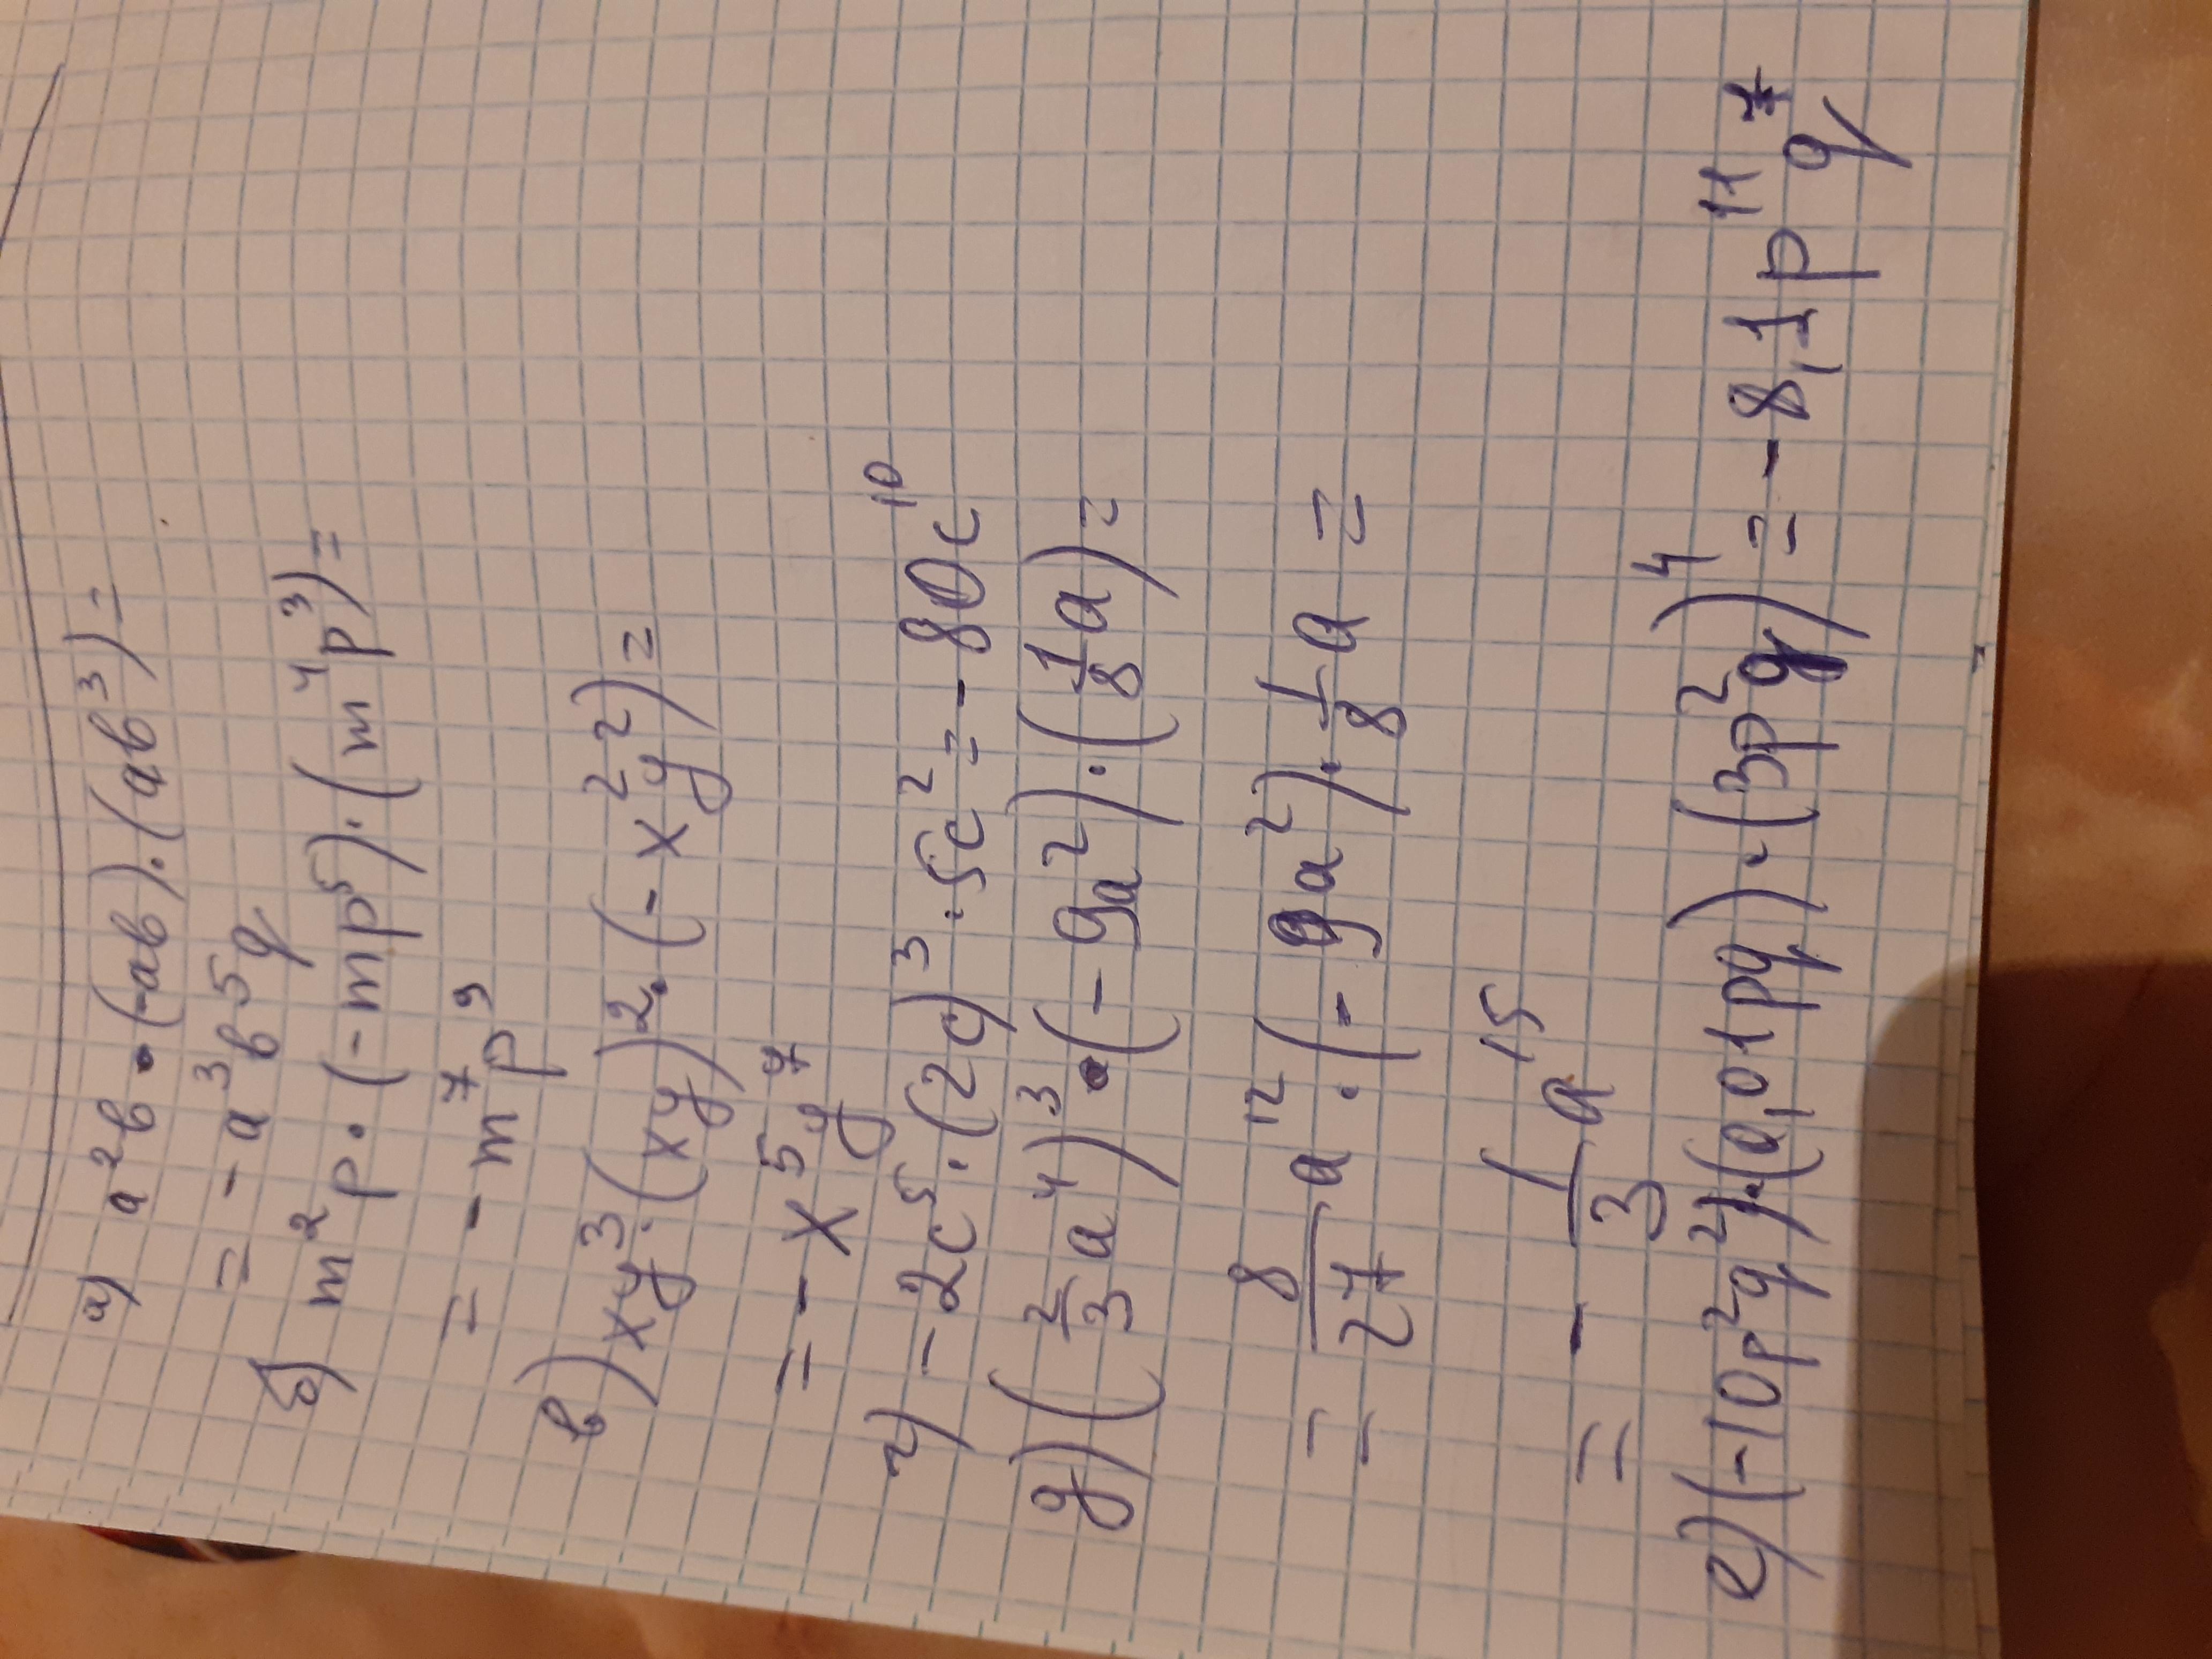 а) a²b · (-ab) · (ab³) =
= - a³b⁵g
б) m²p · (-mp⁵) · (m⁴p³) =
= - m⁷p⁹
в) xy³ · (xy)² · (-x²y²) =
= - x⁵y⁷
г) - 2c⁵ · (2c)³ · 5c² = - 80c¹⁰
g) (2/3 a⁴)³ · (-9a²) · (1/8 a) =
= 8/27 a¹² · (-9a²) · 1/8 a =
= - 1/3 a¹⁵
е) (-10p²q²) · (0,01pq) · (3p²q)⁴ = - 8,1p¹¹q⁷